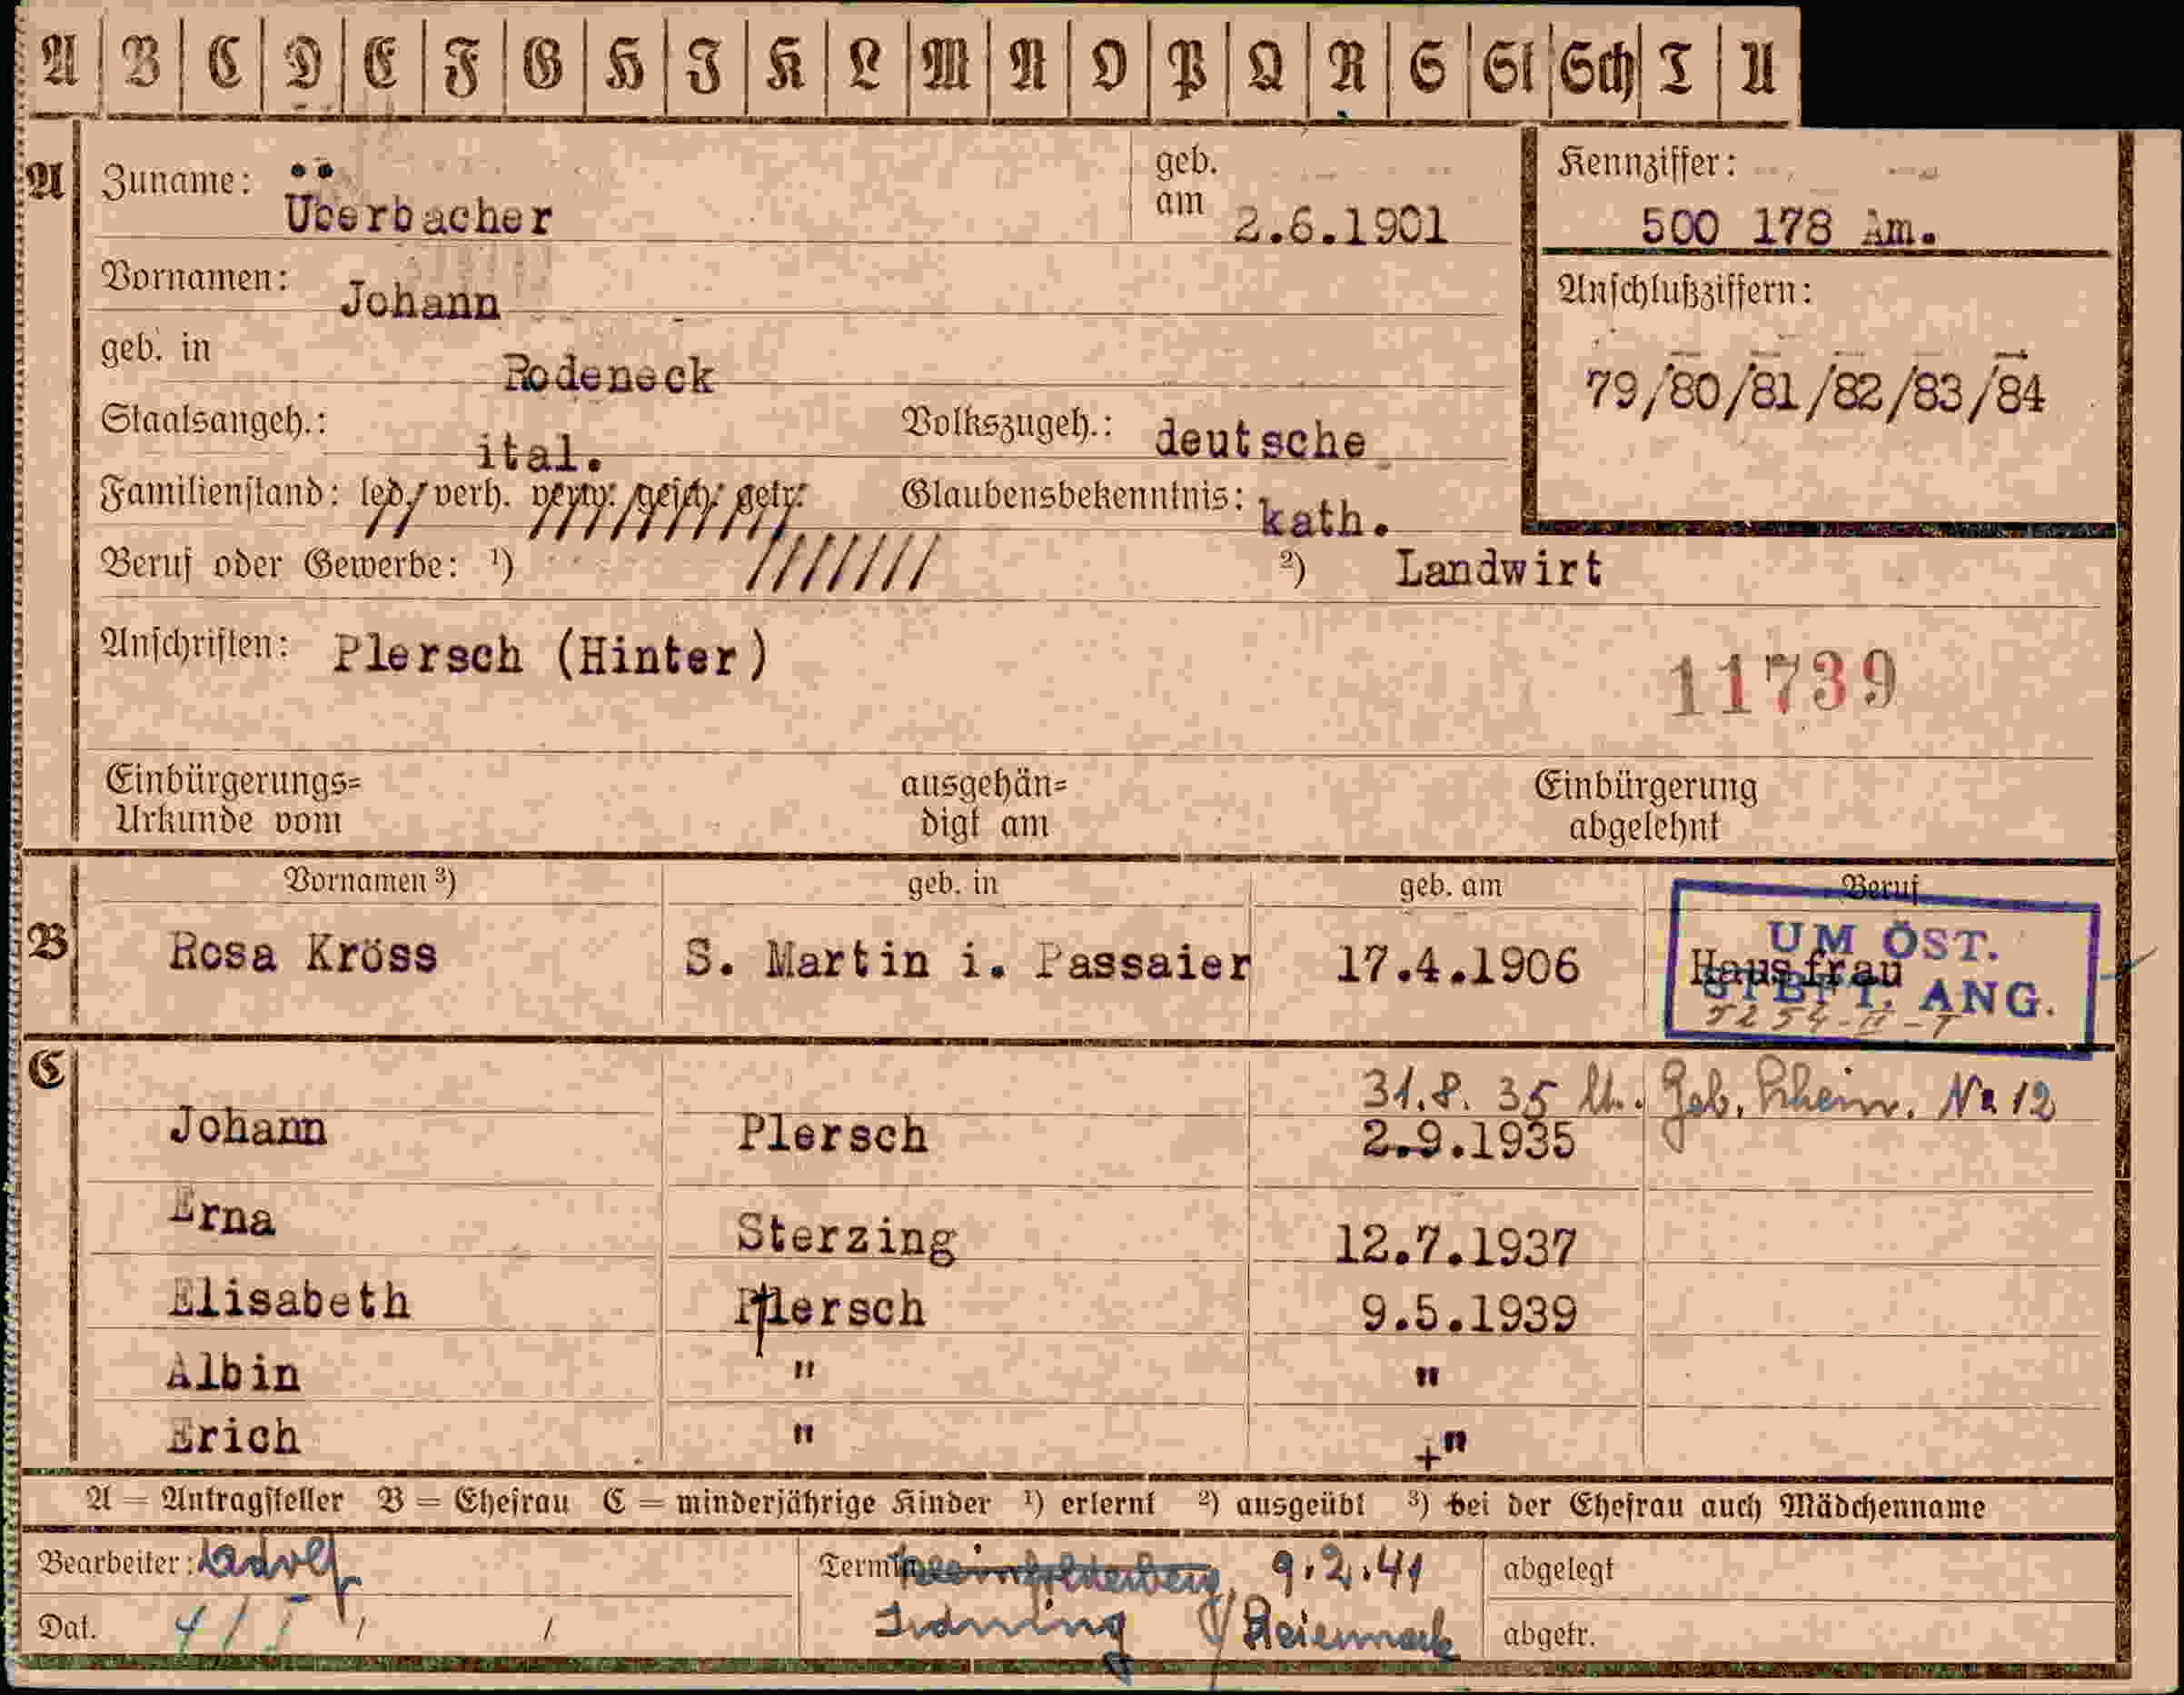 A B C D E F G H I K L M N O P Q R S St Sch T U
A Zuname: Überbacher geb. am 2.6.1901 Kennziffer: 500 178 Am.
Vornamen: Johann Anschlußziffern:
geb. in Rodeneck 79/80/81/82/83/84
Staatsangeh.: ital. Volkszugeh.: deutsche
Familienstand: led./verh. verw. gesch. getr. Glaubensbekenntnis: kath.
Beruf oder Gewerbe: ¹) /////// ²) Landwirt
Anschriften: Plersch (Hinter)
11739
Einbürgerungs= ausgehän= Einbürgerung
Urkunde vom digt am abgelehnt
Vornamen ³) geb. in geb. am Beruf
B Rosa Kröss S. Martin i. Passaier 17.4.1906 Hausfrau
UM ÖST.
STBFT. ANG.
5254-II-7
C 31.8.35 lt. Geb. Schein. Nr 12
Johann Plersch 2.9.1935
Erna Sterzing 12.7.1937
Elisabeth Plersch 9.5.1939
Albin " "
Erich " +"
A = Antragsteller B = Ehefrau C = minderjährige Kinder ¹) erlernt ²) ausgeübt ³) bei der Ehefrau auch Mädchenname
Bearbeiter: Termin 9.2.41 abgelegt
Dat. 4 / I / / Irdning / Steiermark abgetr.